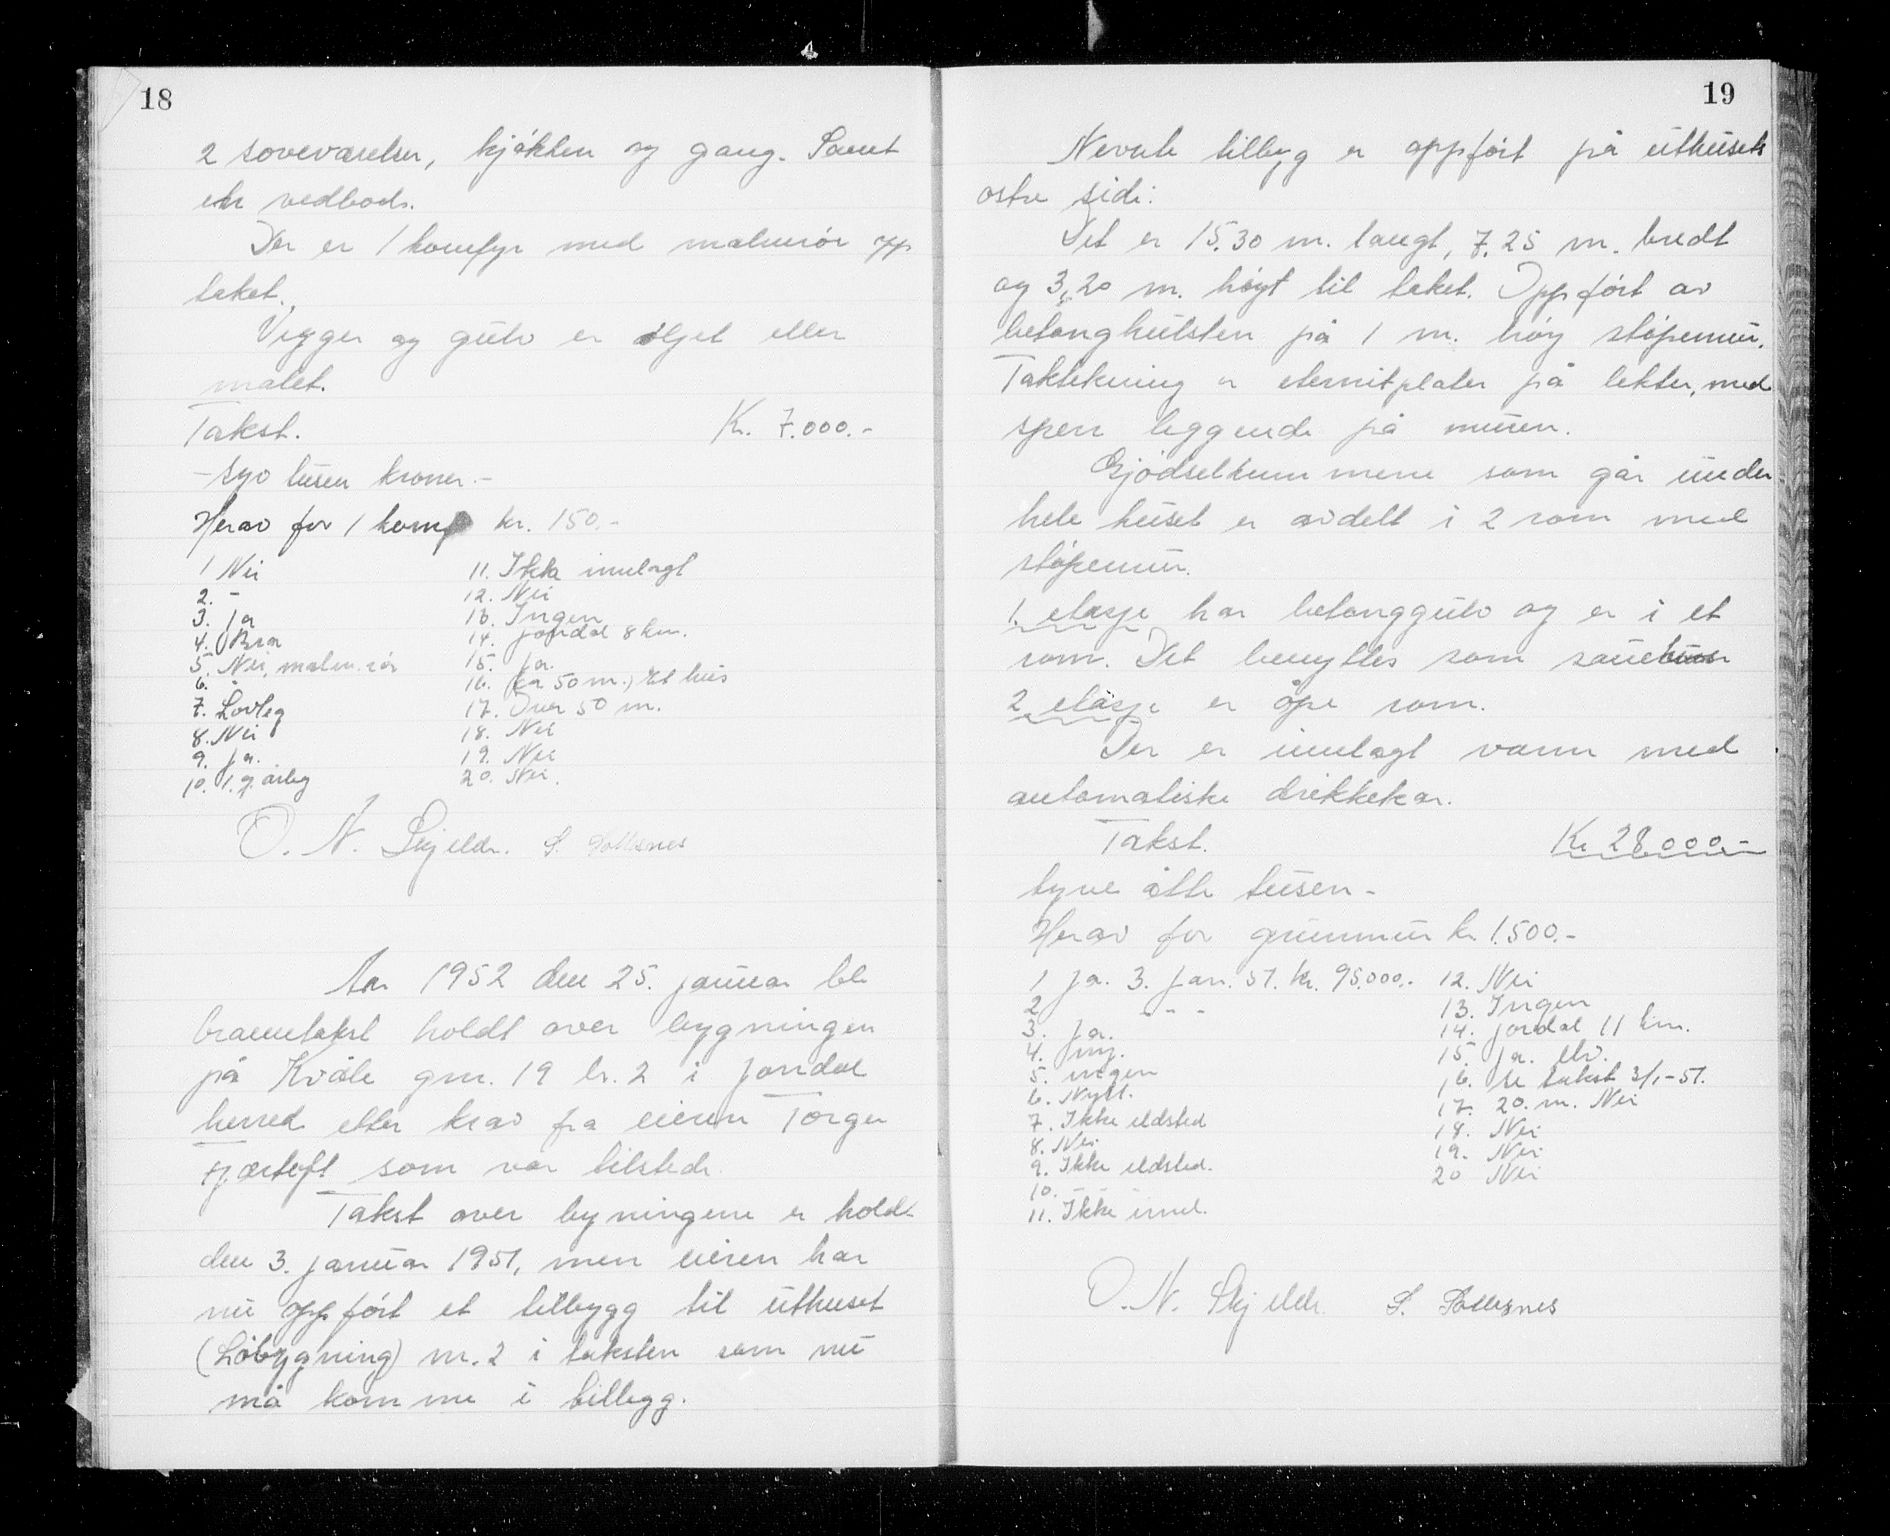 18
2 soveværelser, kjøkken og gang. Samt
en vedbod.
Der er 1 komfyr med malmrør opp
taket.
Vegger og gulv er oljet eller
malet.
Takst. Kr. 7.000.-
- syv tusen kroner.-
Herav for 1 komf kr. 150.-
1 Nei
2. -
3. Ja
4. Bra
5. Nei, malm.rør
6. -
7. Lovleg
8. Nei
9. Ja.
10. 1 g. årleg
11. Ikke innlagt
12. Nei
13. Ingen
14. Jondal 8 km.
15. Ja
16. (ca 50 m.) Et hus
17. Over 50 m.
18. Nei
19. Nei
20. Nei.
O. N. Skjelde. S. Sollesnes
År 1952 den 25. januar ble
branntakst holdt over bygningen
på Kvåle gnr. 19 br. 2 i Jondal
herred etter krav fra eieren Torger
som var tilstede.
Takst over bygningene er holdt
den 3. januar 1951, men eieren har
nu oppført et tilbygg til uthuset
(Løbygning) nr. 2 i taksten som nu
må komme i tillegg.
19
Nevnte tilbyg er oppført på uthusets
østre side:
Det er 15.30 m. langt, 7.25 m. bredt
og 3,20 m. høyt til taket. Oppført av
betonghulsten på 1 m. høy støpemur.
Taktekning er eternitplater på lekter, med
sperr liggende på muren.
Gjødselkummene som går under
hele huset er avdelt i 2 rom med
støpemur.
1. etasje har betonggulv og er i et
rom. Det benyttes som sauehus
2 etasje er åpe rom.
Der er innlagt vann med
automatiske drikkekar.
Takst. Kr 28000.-
tyve åtte tusen -
Herav for grunnmur kr. 1.500.-
1 Ja. 3. Jan. 51. kr. 95.000..
2 - - -
3. Ja.
4. ny.
5. ingen
6. Nytt.
7. Ikke eldsted
8. Nei
9. Ikke eldsted.
10. - -
11. Ikke innl.
12. Nei
13. Ingen
14. Jondal 11 km.
15. Ja. Elv.
16. se takst 3/1-51.
17. 20. m. Nei
18. Nei
19. Nei
20 Nei
O. N. Skjelde S. Sollesnes